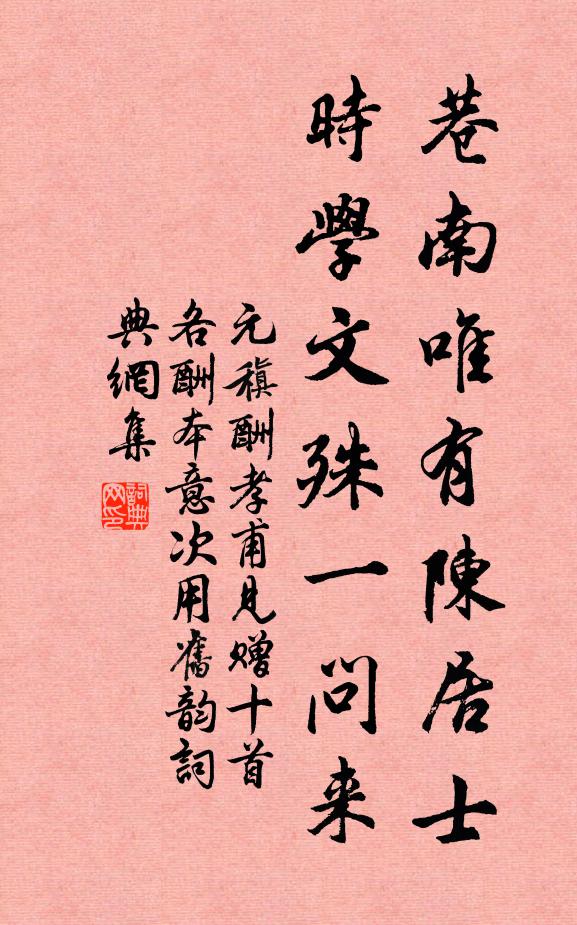 巷南唯有陳居士
時學文殊一問来
元稹酬孝甫見贈十首
各酬本意次用舊韵詞
典網集
詞典网印